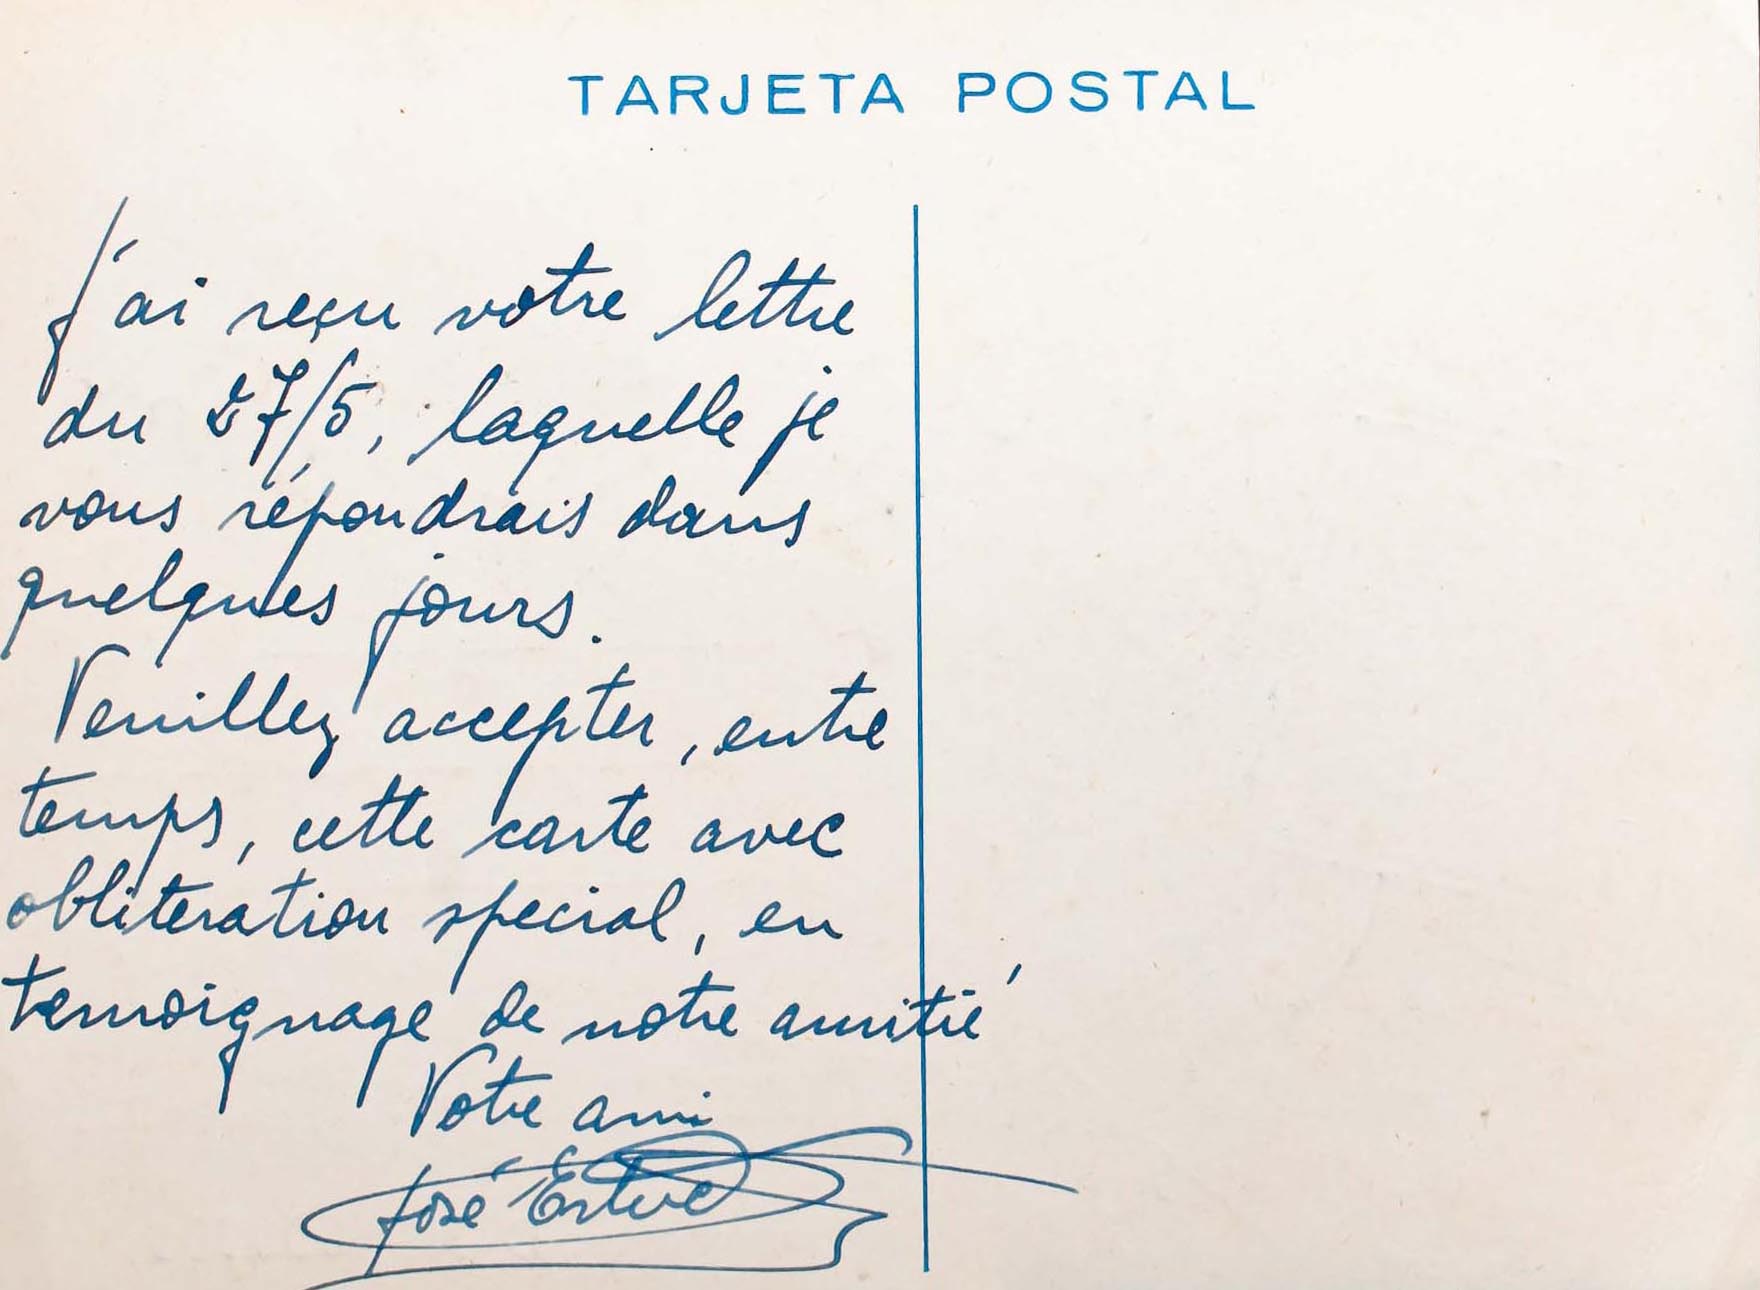 TARJETA POSTAL
J'ai reçu votre lettre
du 27/5, laquelle je
vous répondrais dans
quelques jours.
Veuillez accepter, entre
temps, cette carte avec
obliteration special, en
temoignage de notre amitié
Votre ami
José Esteve